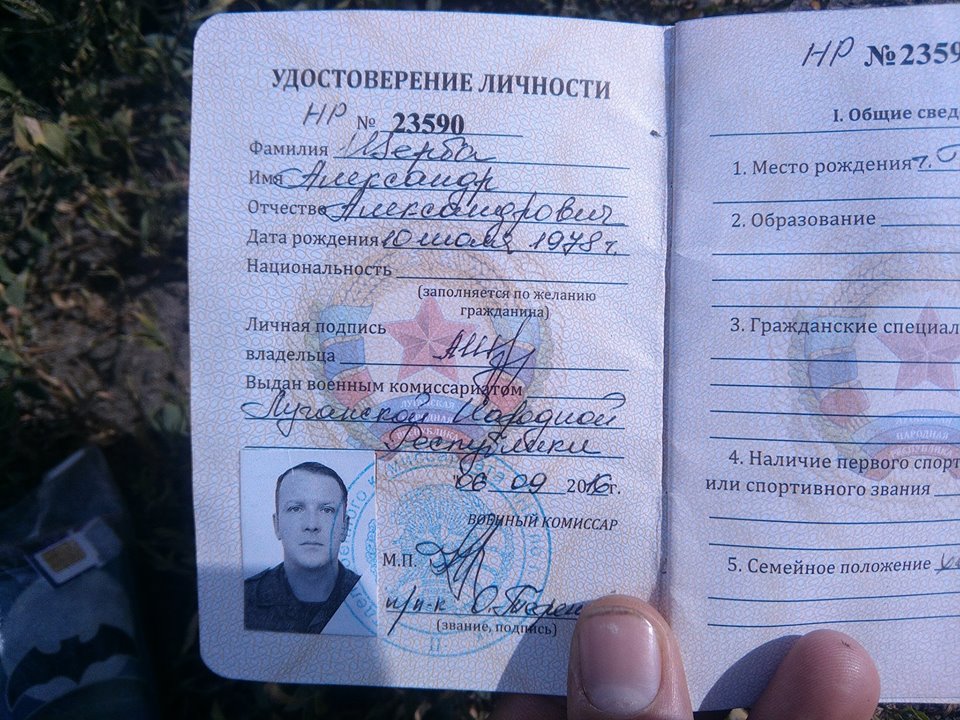 УДОСТОВЕРЕНИЕ ЛИЧНОСТИ
НР № 23590
Фамилия Щерба
Имя Александр
Отчество Александрович
Дата рождения 10 июля 1978 г.
Национальность
(заполняется по желанию
гражданина)
Личная подпись
владельца
Выдан военным комиссариатом
Луганской Народной
Республики
"06 09 2016г.
ВОЕННЫЙ КОМИССАР
М.П.
п/п-к О.
(звание, подпись)
НР №2359
I. Общие свед
1. Место рождения г.
2. Образование
3. Гражданские специал
4. Наличие первого спорт
или спортивного звания
5. Семейное положение